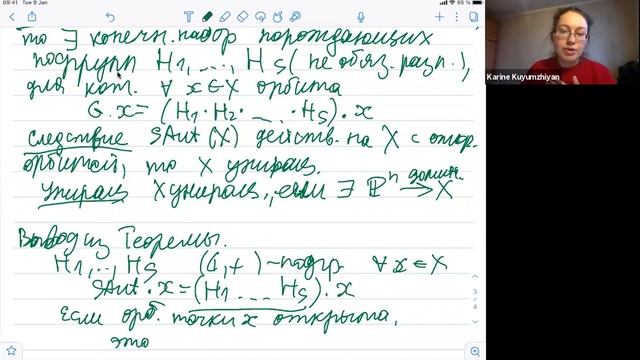 09:41 Tue 9 Jan
то ∃ конечн. набор порождающих
подгрупп H1, ..., Hs (не обяз. разл.),
для кот. ∀ x ∈ X орбита
G.x = (H1·H2· ... ·Hs).x
Следствие SAut(X) действ. на X с откр.
орбитой, то X унирац.
Унирац X унирац., если ∃ ℙⁿ доминн.→ X
Вывод из Теоремы.
H1, ..., Hs (ℂ,+)-подгр. ∀ x ∈ X
SAut.x = (H1 ... Hs).x
Если орб. точки x открыта,
это
Karine Kuyumzhiyan